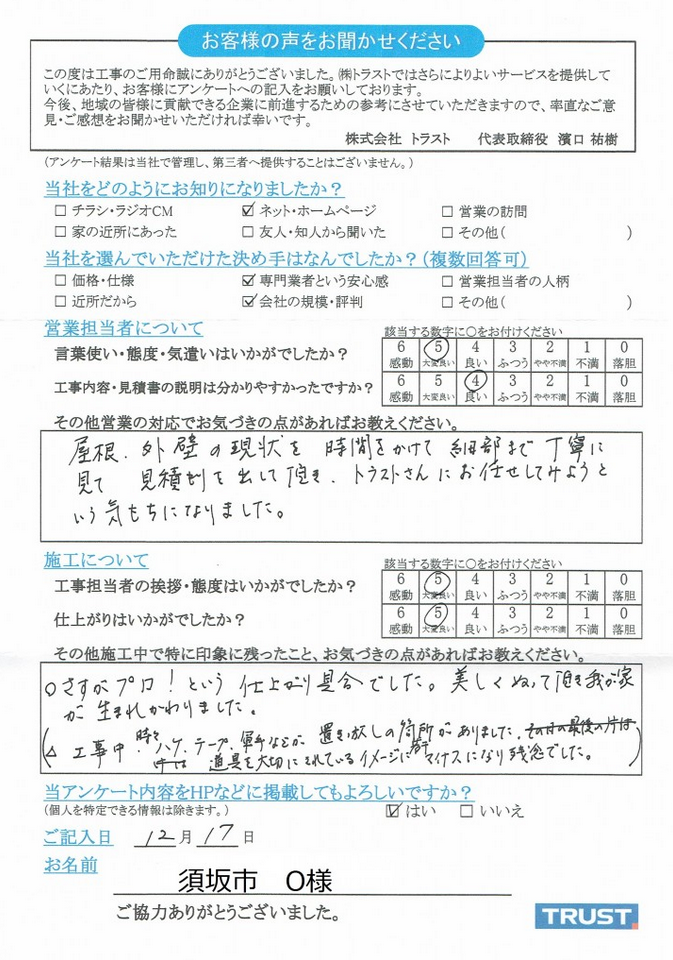 お客様の声をお聞かせください
この度は工事のご用命誠にありがとうございました。㈱トラストではさらによりよいサービスを提供して
いくにあたり、お客様にアンケートへの記入をお願いしております。
今後、地域の皆様に貢献できる企業に前進するための参考にさせていただきますので、率直なご意
見・ご感想をお聞かせいただければ幸いです。
株式会社 トラスト　代表取締役 濱口 祐樹
(アンケート結果は当社で管理し、第三者へ提供することはございません。)
当社をどのようにお知りになりましたか？
□ チラシ・ラジオCM ☑ ネット・ホームページ □ 営業の訪問
□ 家の近所にあった □ 友人・知人から聞いた □ その他( )
当社を選んでいただけた決め手はなんでしたか？(複数回答可)
□ 価格・仕様 ☑ 専門業者という安心感 □ 営業担当者の人柄
□ 近所だから ☑ 会社の規模・評判 □ その他( )
営業担当者について 該当する数字に○をお付けください
言葉使い・態度・気遣いはいかがでしたか？ 6 5 4 3 2 1 0
感動 大変良い 良い ふつう やや不満 不満 落胆
工事内容・見積書の説明は分かりやすかったですか？ 6 5 4 3 2 1 0
感動 大変良い 良い ふつう やや不満 不満 落胆
その他営業の対応でお気づきの点があればお教えください。
屋根、外壁の現状を時間をかけて細部まで丁寧に
見て 見積りを出して頂き、トラストさんにお任せしてみようと
いう気もちになりました。
施工について 該当する数字に○をお付けください
工事担当者の挨拶・態度はいかがでしたか？ 6 5 4 3 2 1 0
感動 大変良い 良い ふつう やや不満 不満 落胆
仕上がりはいかがでしたか？ 6 5 4 3 2 1 0
感動 大変良い 良い ふつう やや不満 不満 落胆
その他施工中で特に印象に残ったこと、お気づきの点があればお教えください。
○さすがプロ！という仕上がり具合でした。美しくぬって頂き我が家
が生まれかわりました。
(△ 工事中、時々ハケ、テープ、軍手などが置き放しの箇所がありました、
道具を大切にされているイメージに若干マイナスになり残念でした。)
当アンケート内容をHPなどに掲載してもよろしいですか？
(個人を特定できる情報は除きます。) ☑ はい □ いいえ
ご記入日 12月17日
お名前
須坂市　O様
ご協力ありがとうございました。
TRUST